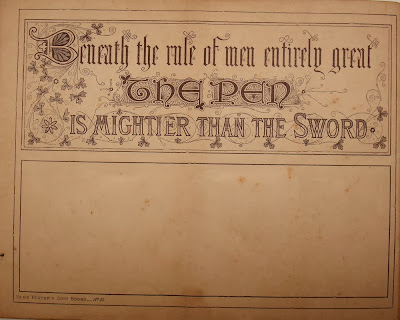 Beneath the rule of men entirely great
THE PEN
IS MIGHTIER THAN THE SWORD.
VERE FOSTER'S COPY BOOKS